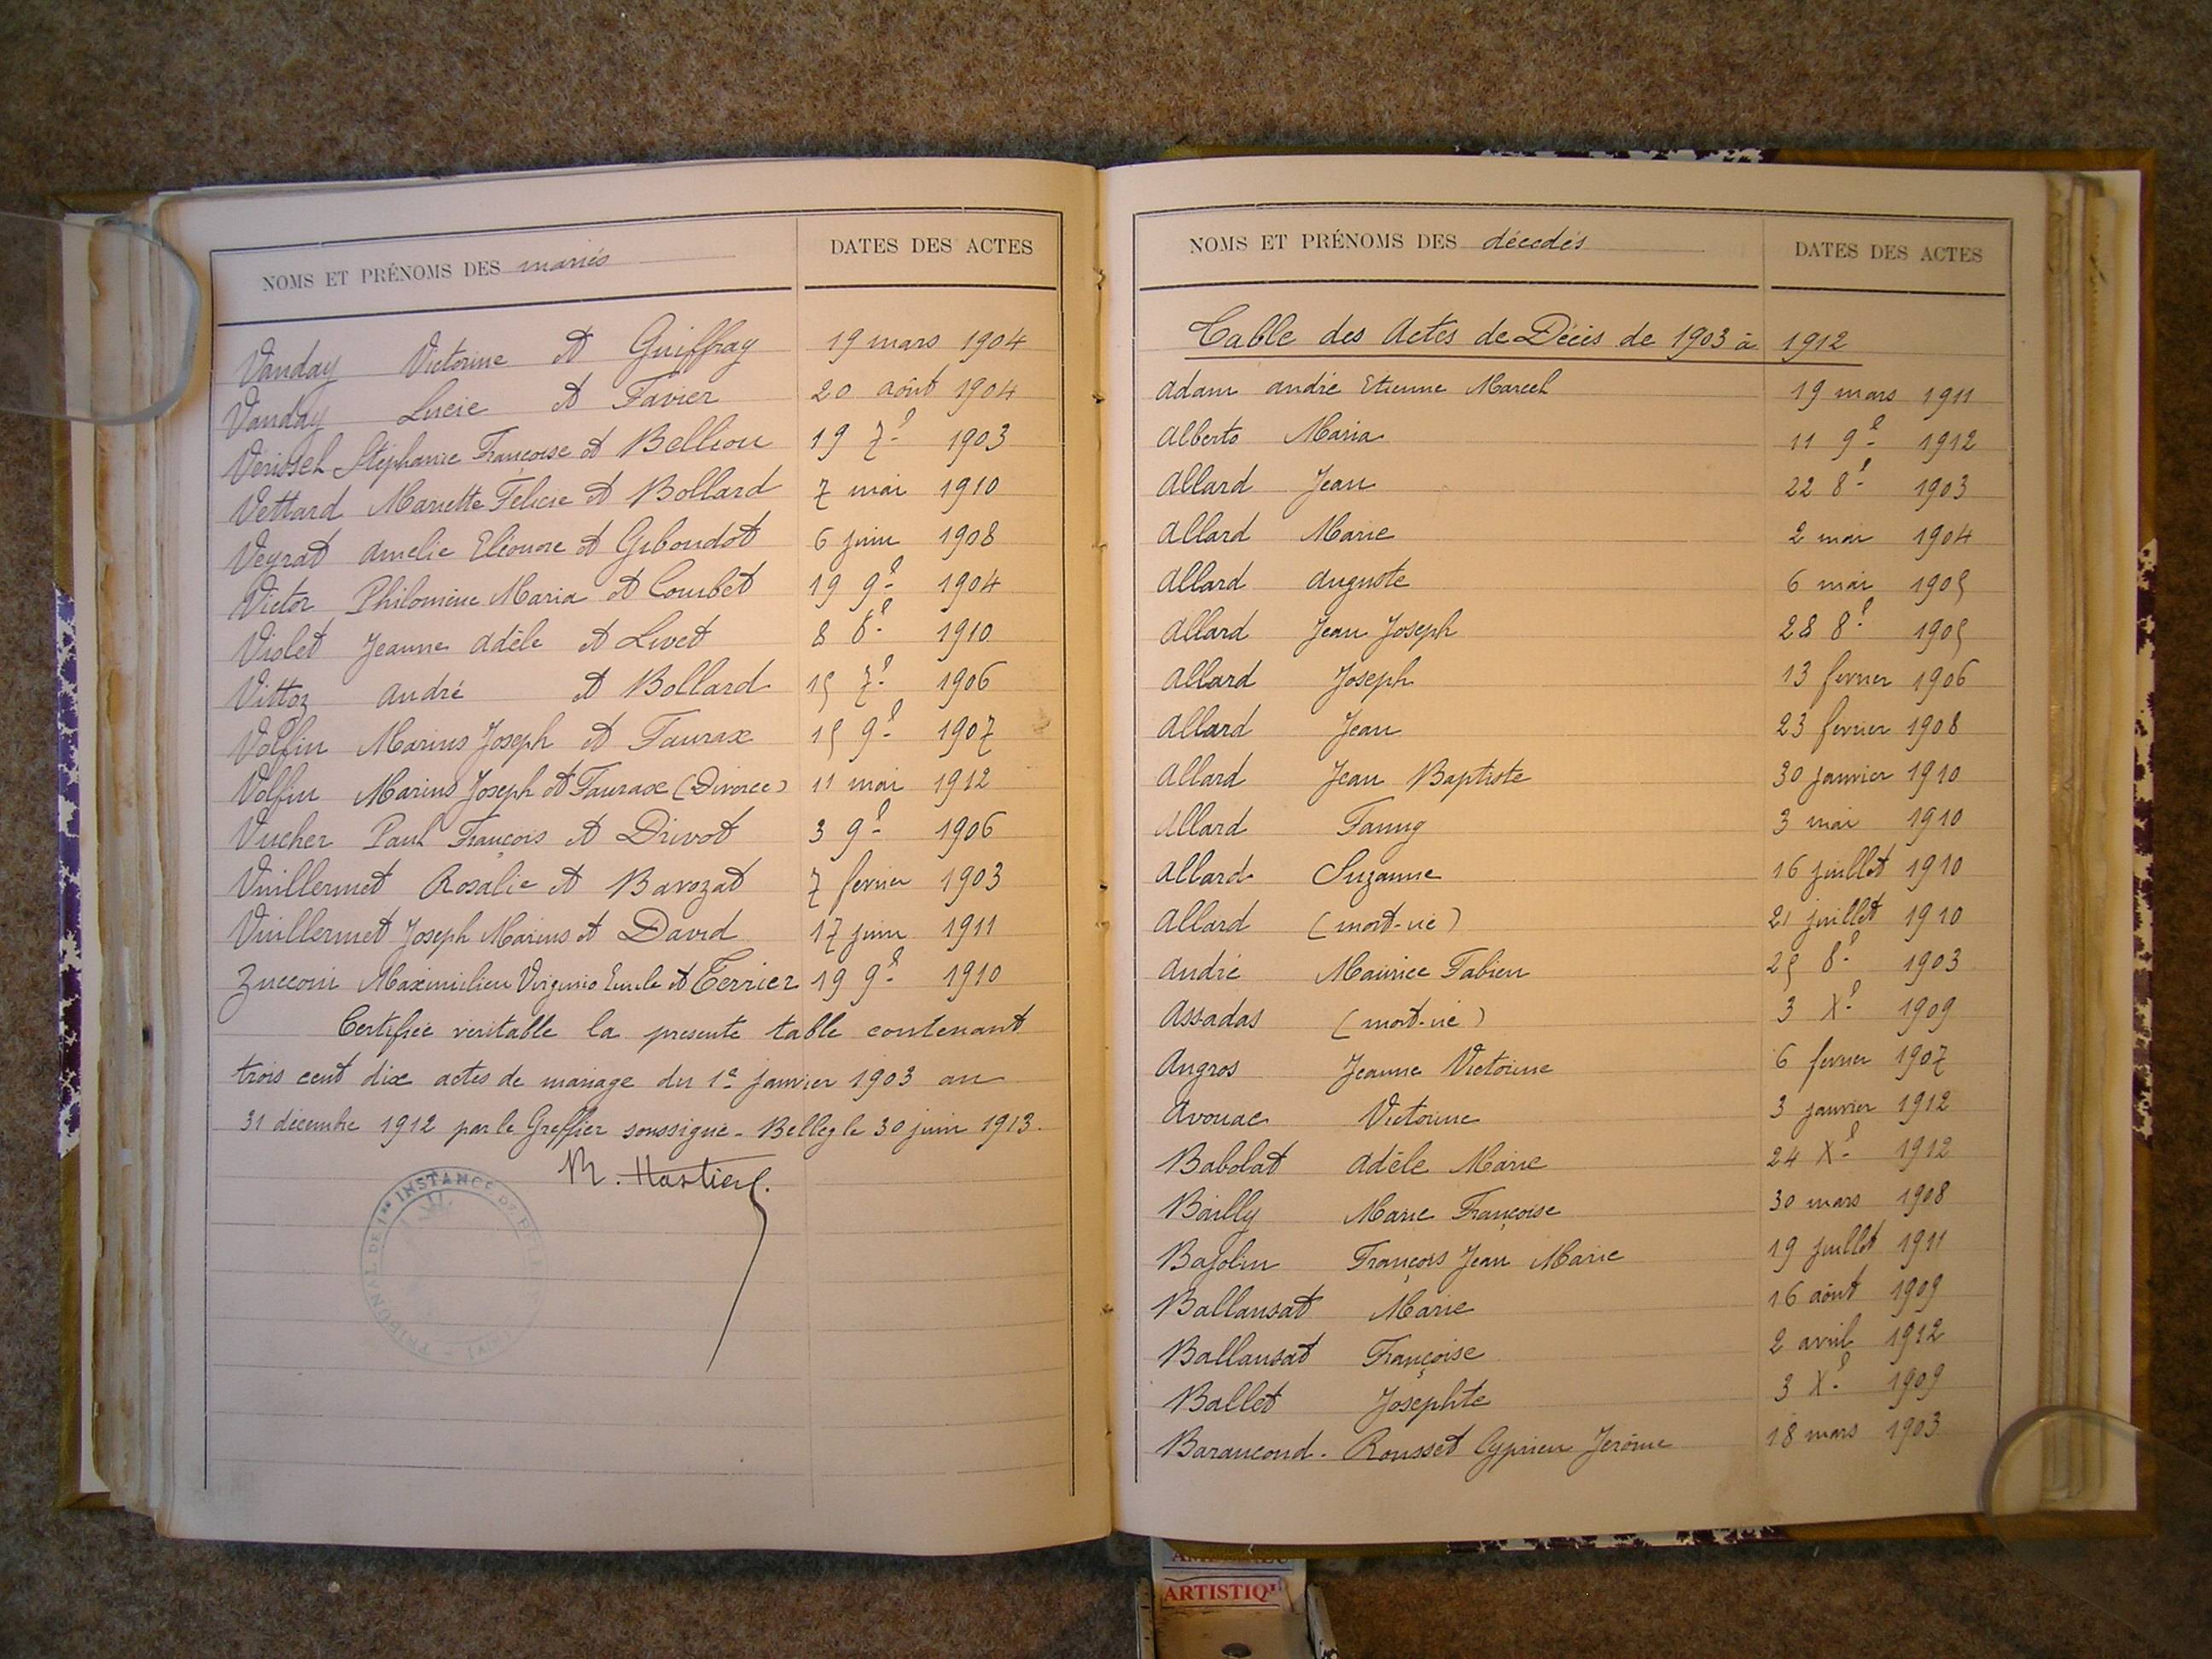 NOMS ET PRÉNOMS DES mariés DATES DES ACTES
Vanday Victorine et Guiffray 19 mars 1904
Vanday Lucie et Favier 20 août 1904
Vérissel Stéphanie Françoise et Bellion 19 7? 1903
Vettard Mariette Félicie et Bollard 7 mai 1910
Veyrat Amélie Eléonore et Giboudot 6 juin 1908
Victor Philomène Maria et Courbet 19 9? 1904
Violet Jeanne Adèle et Livet 8 8? 1910
Vittoz André et Bollard 15 7? 1906
Volfin Marius Joseph et Faurax 15 9? 1907
Volfin Marius Joseph et Faurax (Divorce) 11 mai 1912
Vucher Paul François et Drivot 3 9? 1906
Vuillermet Rosalie et Bavozat 7 fevrier 1903
Vuillermet Joseph Marius et David 17 juin 1911
Zucconi Maximilien Virginio Emile et Terrier 19 9? 1910
Certifiée véritable la presente table contenant
trois cent dix actes de mariage du 1e janvier 1903 au
31 décembre 1912 par le Greffier soussigné - Belley le 30 juin 1913.
TRIBUNAL DE 1re INSTANCE DE
NOMS ET PRÉNOMS DES décédés DATES DES ACTES
Table des Actes de Décès de 1903 à 1912
Adam André Etienne Marcel 19 mars 1911
Alberto Maria 11 9? 1912
Allard Jean 22 8? 1903
Allard Marie 2 mai 1904
Allard Auguste 6 mai 1905
Allard Jean Joseph 28 8? 1905
Allard Joseph 13 fevrier 1906
Allard Jean 23 fevrier 1908
Allard Jean Baptiste 30 janvier 1910
Allard Fanny 3 mai 1910
Allard Suzanne 16 juillet 1910
Allard (mort-né) 21 juillet 1910
André Maurice Fabien 25 8? 1903
Assadas (mort-né) 3 X? 1909
Angros Jeanne Victorine 6 fevrier 1907
Avouac Victorine 3 janvier 1912
Babolat Adèle Marie 24 X? 1912
Bailly Marie Françoise 30 mars 1908
Bajolin François Jean Marie 19 juillet 1911
Ballansat Marie 16 août 1909
Ballansat Françoise 2 avril 1912
Ballet Josephte 3 X? 1909
Barancond - Rousset Cyprien Jerôme 18 mars 1903
ARTISTIQ